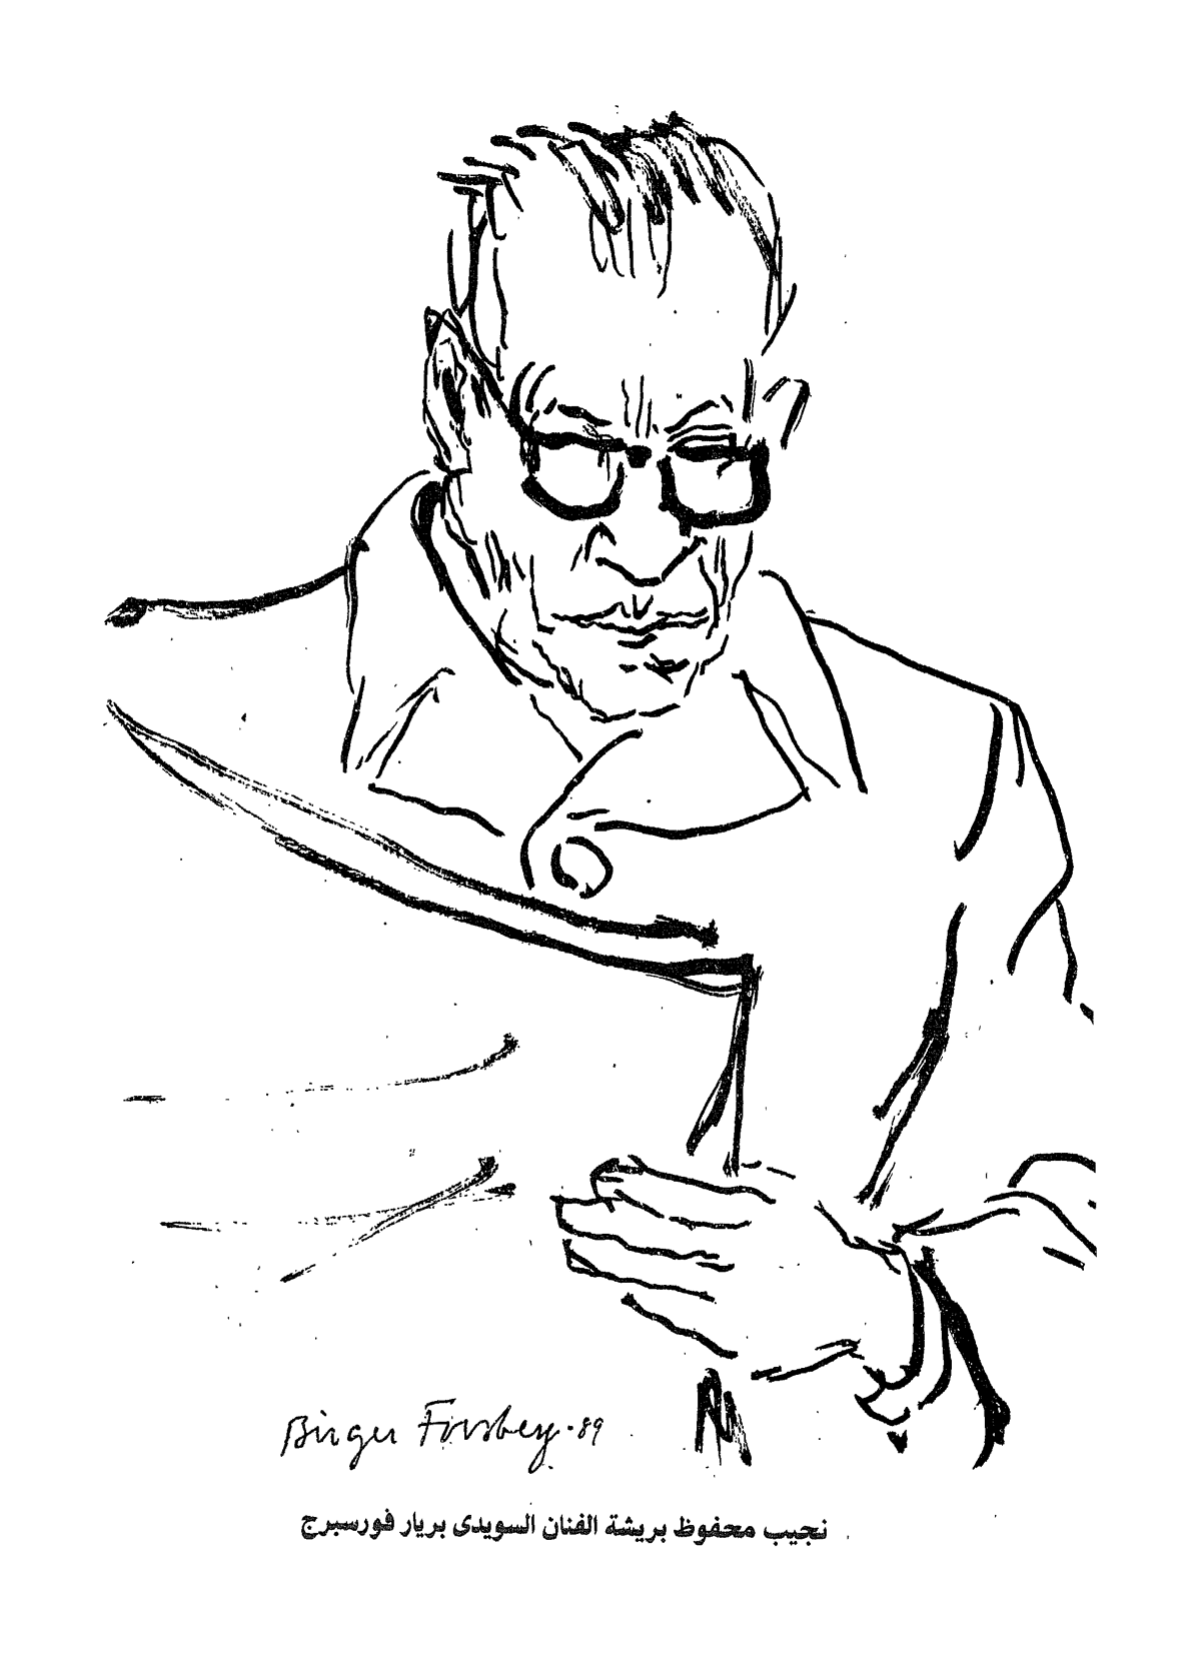 Birger Forsberg -89
نجيب محفوظ بريشة الفنان السويدى بريار فورسبرج